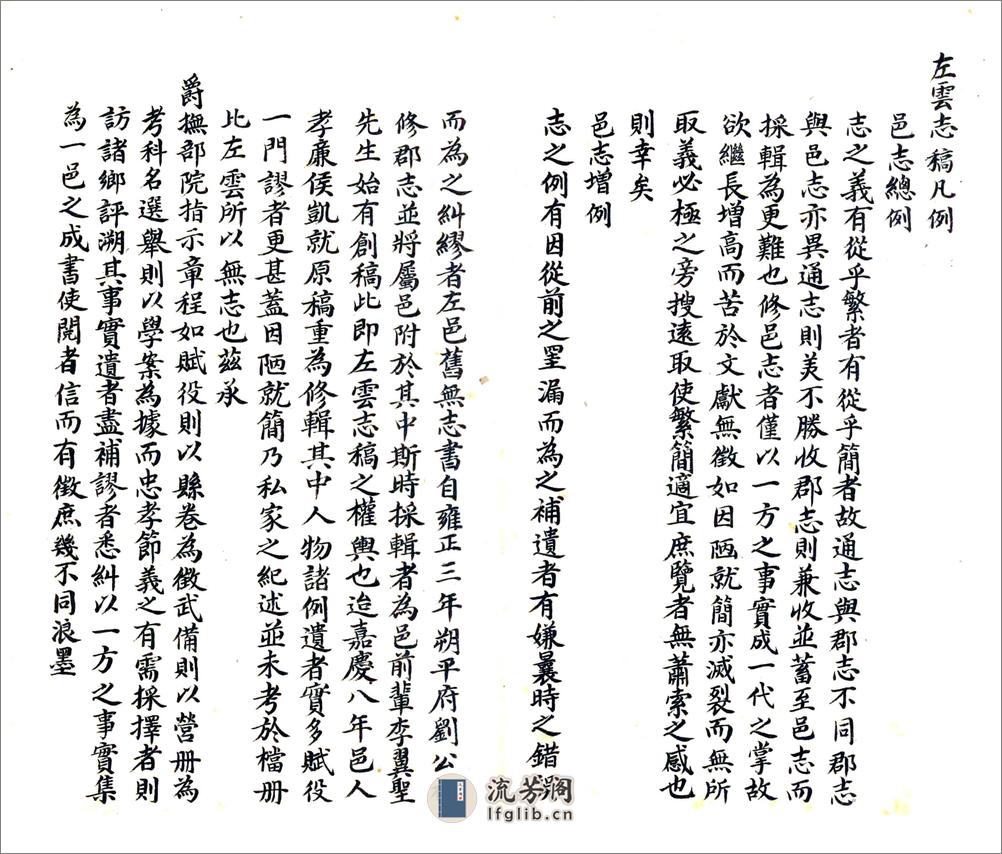 左雲志稿凡例
邑志總例
志之義有從乎繁者有從乎簡者故通志與郡志不同郡志
與邑志亦異通志則美不勝收郡志則兼收並蓄至邑志而
採輯為更難也修邑志者僅以一方之事實成一代之掌故
欲繼長增高而苦於文獻無徵如因陋就簡亦滅裂而無所
取義必極之旁搜遠取使繁簡適宜庶覽者無蕭索之感也
則幸矣
邑志增例
志之例有因從前之罣漏而為之補遺者有嫌曩時之錯
而為之糾繆者左邑舊無志書自雍正三年朔平府劉公
修郡志並將屬邑附於其中斯時採輯者為邑前輩李翼聖
先生始有創稿此即左雲志稿之權輿也迨嘉慶八年邑人
孝廉侯凱就原稿重為修輯其中人物諸例遺者實多賦役
一門謬者更甚蓋因陋就簡乃私家之紀述並未考於檔册
比左雲所以無志也茲承
爵撫部院指示章程如賦役則以縣卷為徵武備則以營册為
考科名選舉則以學案為據而忠孝節義之有需採擇者則
訪諸鄉評溯其事實遺者盡補謬者悉糾以一方之事實集
為一邑之成書使閱者信而有徵庶幾不同浪墨
流芳閣
lfglib.cn